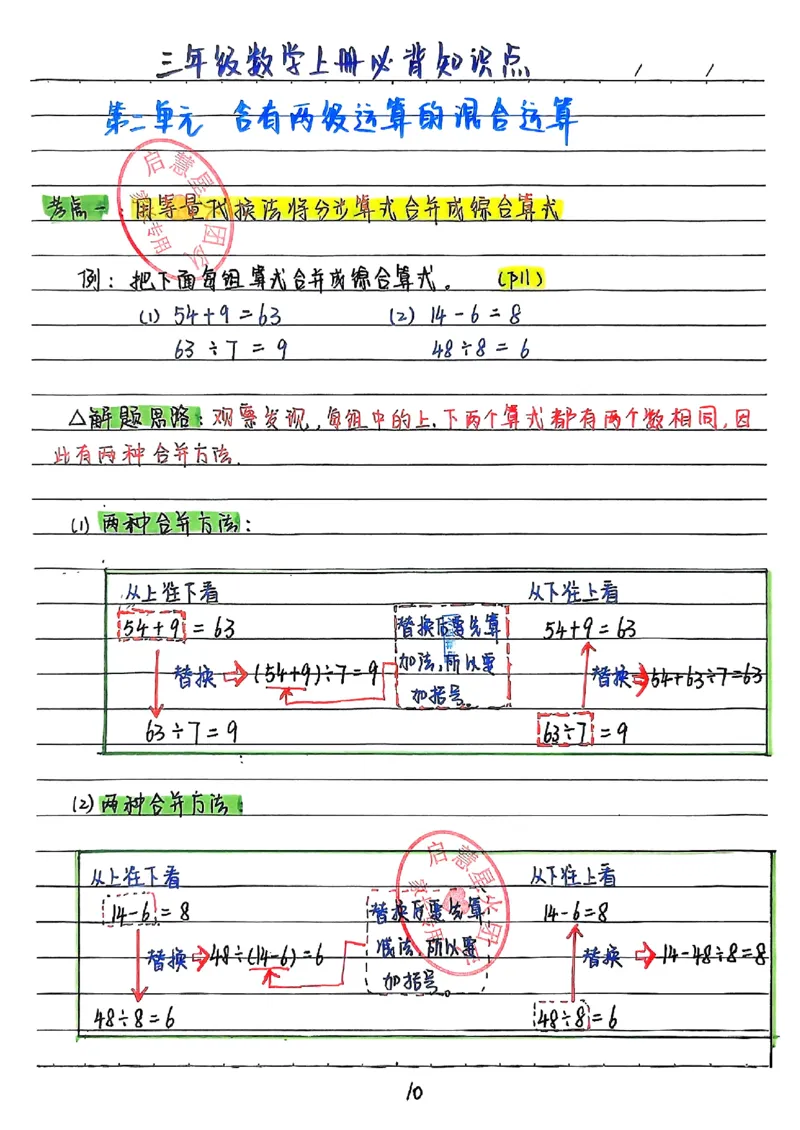 三年级数学上册必背知识点 / /
第二单元 含有两级运算的混合运算
考点一：用等量代换法将分步算式合并成综合算式
例：把下面每组算式合并成综合算式。 (P11)
(1) 54+9=63 (2) 14-6=8
63÷7=9 48÷8=6
△解题思路：观察发现，每组中的上、下两个算式都有两个数相同，因
此有两种合并方法.
(1) 两种合并方法：
从上往下看 从下往上看
54+9=63 替换后要先算 54+9=63
替换 (54+9)÷7=9 加法，所以要 替换 54+63÷7=63
加括号。
63÷7=9 63÷7=9
(2) 两种合并方法：
从上往下看 从下往上看
14-6=8 替换后要先算 14-6=8
替换 48÷(14-6)=6 减法，所以要 替换 14-48÷8=8
加括号。
48÷8=6 48÷8=6
10
启慧星火团队
专用
启慧星火团